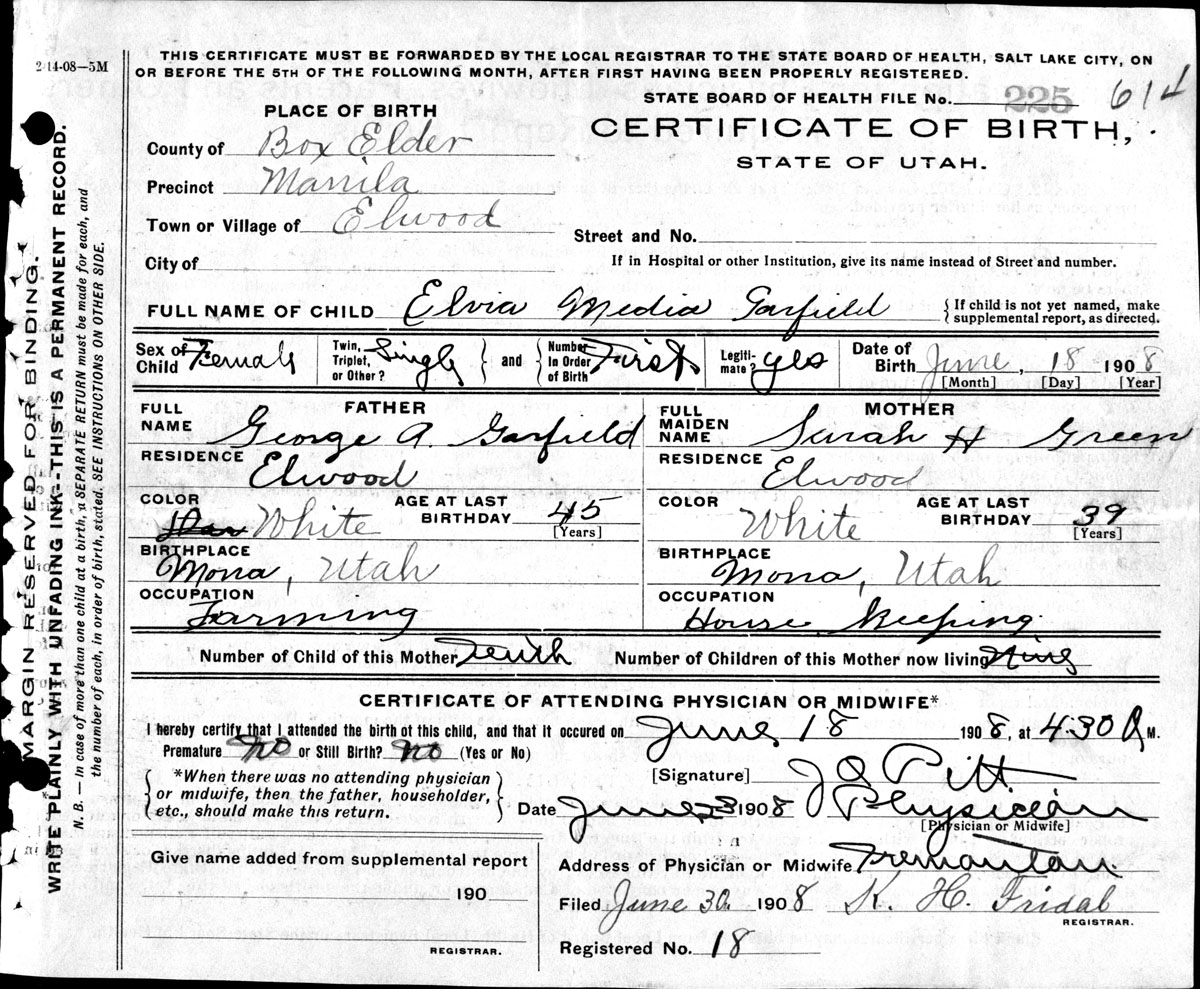 2-14-08—5M
THIS CERTIFICATE MUST BE FORWARDED BY THE LOCAL REGISTRAR TO THE STATE BOARD OF HEALTH, SALT LAKE CITY, ON
OR BEFORE THE 5TH OF THE FOLLOWING MONTH, AFTER FIRST HAVING BEEN PROPERLY REGISTERED.
STATE BOARD OF HEALTH FILE No. 225 614
PLACE OF BIRTH
CERTIFICATE OF BIRTH,
STATE OF UTAH.
County of Box Elder
Precinct Manila
Town or Village of Elwood
Street and No.
City of
If in Hospital or other Institution, give its name instead of Street and number.
FULL NAME OF CHILD Elvia Media Garfield {If child is not yet named, make
supplemental report, as directed.
Sex of Child Female
Twin, Triplet, or Other? Single } and { Number In Order of Birth First
Legiti- mate? yes
Date of Birth June, 18 1908
[Month] [Day] [Year]
FATHER
FULL NAME George A. Garfield
RESIDENCE Elwood
COLOR White AGE AT LAST BIRTHDAY 45
[Years]
BIRTHPLACE
Mona, Utah
OCCUPATION
Farming
MOTHER
FULL MAIDEN NAME Sarah H Green
RESIDENCE Elwood
COLOR White AGE AT LAST BIRTHDAY 39
[Years]
BIRTHPLACE
Mona, Utah
OCCUPATION
House Keeping
Number of Child of this Mother Tenth Number of Children of this Mother now living Nine
CERTIFICATE OF ATTENDING PHYSICIAN OR MIDWIFE*
I hereby certify that I attended the birth of this child, and that it occured on June 18 1908, at 4.30 A M.
Premature no or Still Birth? no (Yes or No)
{ *When there was no attending physician
or midwife, then the father, householder,
etc., should make this return. }
[Signature] Pitt
Date June 1908 Physician
[Physician or Midwife]
Give name added from supplemental report
190
REGISTRAR.
Address of Physician or Midwife
Filed June 30 1908 K. H. Fridal
REGISTRAR.
Registered No. 18
MARGIN RESERVED FOR BINDING.
WRITE PLAINLY WITH UNFADING INK--THIS IS A PERMANENT RECORD.
N. B. — In case of more than one child at a birth, a SEPARATE RETURN must be made for each, and
the number of each, in order of birth, stated. SEE INSTRUCTIONS ON OTHER SIDE.